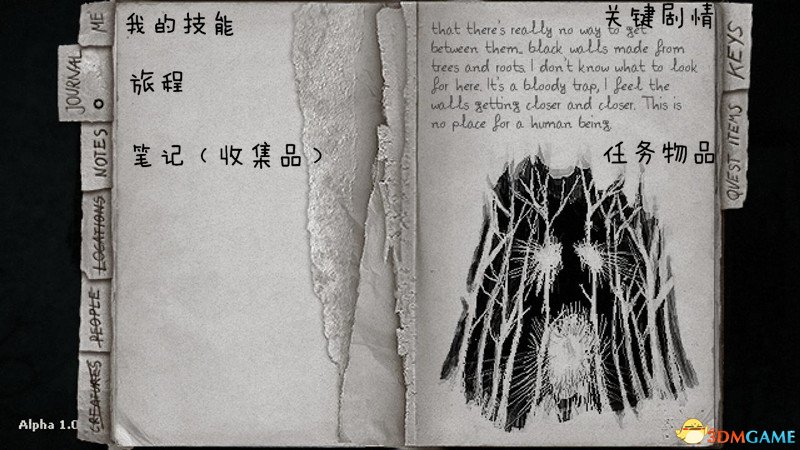 我的技能
旅程
笔记（收集品）
ME
JOURNAL
NOTES
LOCATIONS
PEOPLE
CREATURES
Alpha 1.0
关键剧情
that there's really no way to get
between them... black walls made from
trees and roots. I don't know what to look
for here. It's a bloody trap, I feel the
walls getting closer and closer. This is
no place for a human being.
任务物品
KEYS
QUEST ITEMS
3DMGAME